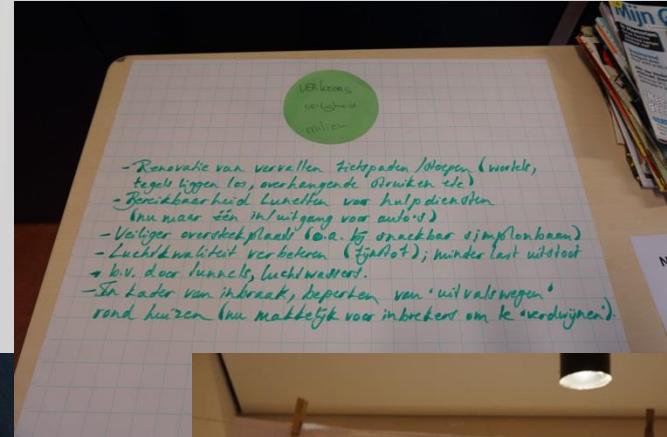 Verkeers
veiligheid
milieu
- Renovatie van vervallen fietspaden / stoepen (wortels,
tegels liggen los, overhangende struiken etc)
- Bereikbaarheid Lunetten voor hulpdiensten
(nu maar één in/uitgang voor auto's)
- Veiliger oversteekplaats (o.a. bij snackbar simplonbaan)
- Luchtkwaliteit verbeteren (fijnstof); minder last uitstoot
b.v. door tunnels, luchtwassers.
- In kader van inbraak, beperken van 'uitvalswegen'
rond huizen (nu makkelijk voor inbrekers om te 'verdwijnen').
Mijn